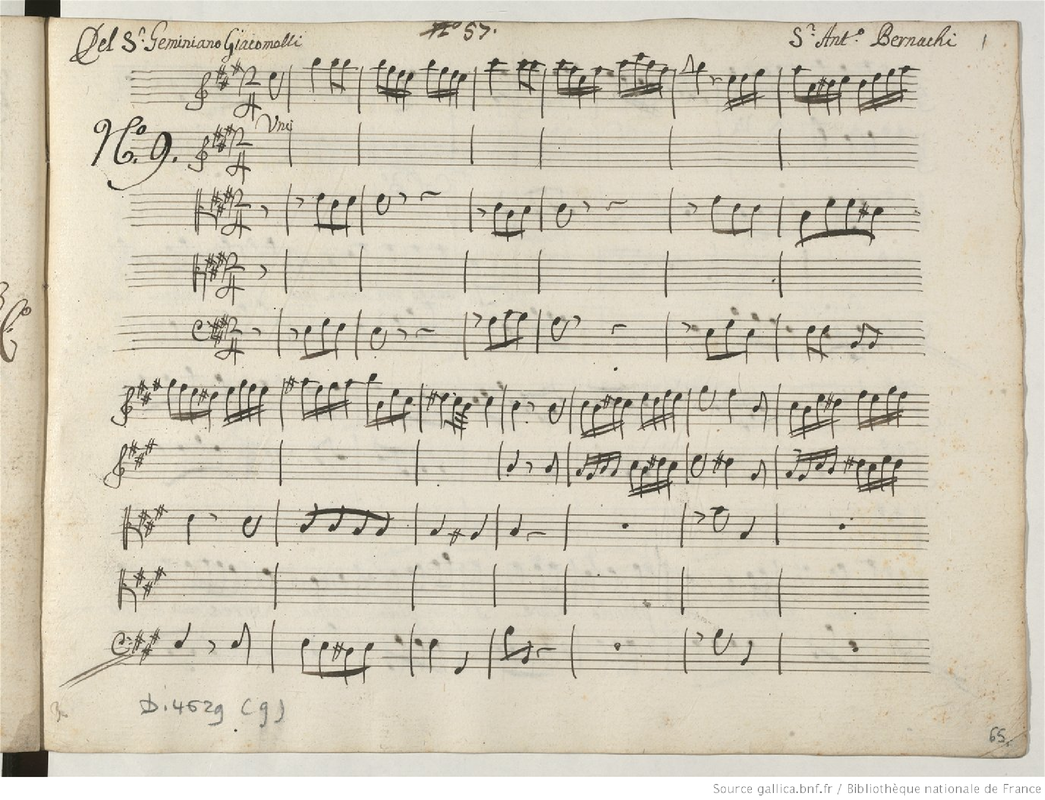 Del S.r Geminiano Giacomelli
N.o 57.
S.r Ant.o Bernachi
1
N.o 9.
Unis
D. 4629 (9)
65.
Source gallica.bnf.fr / Bibliothèque nationale de France